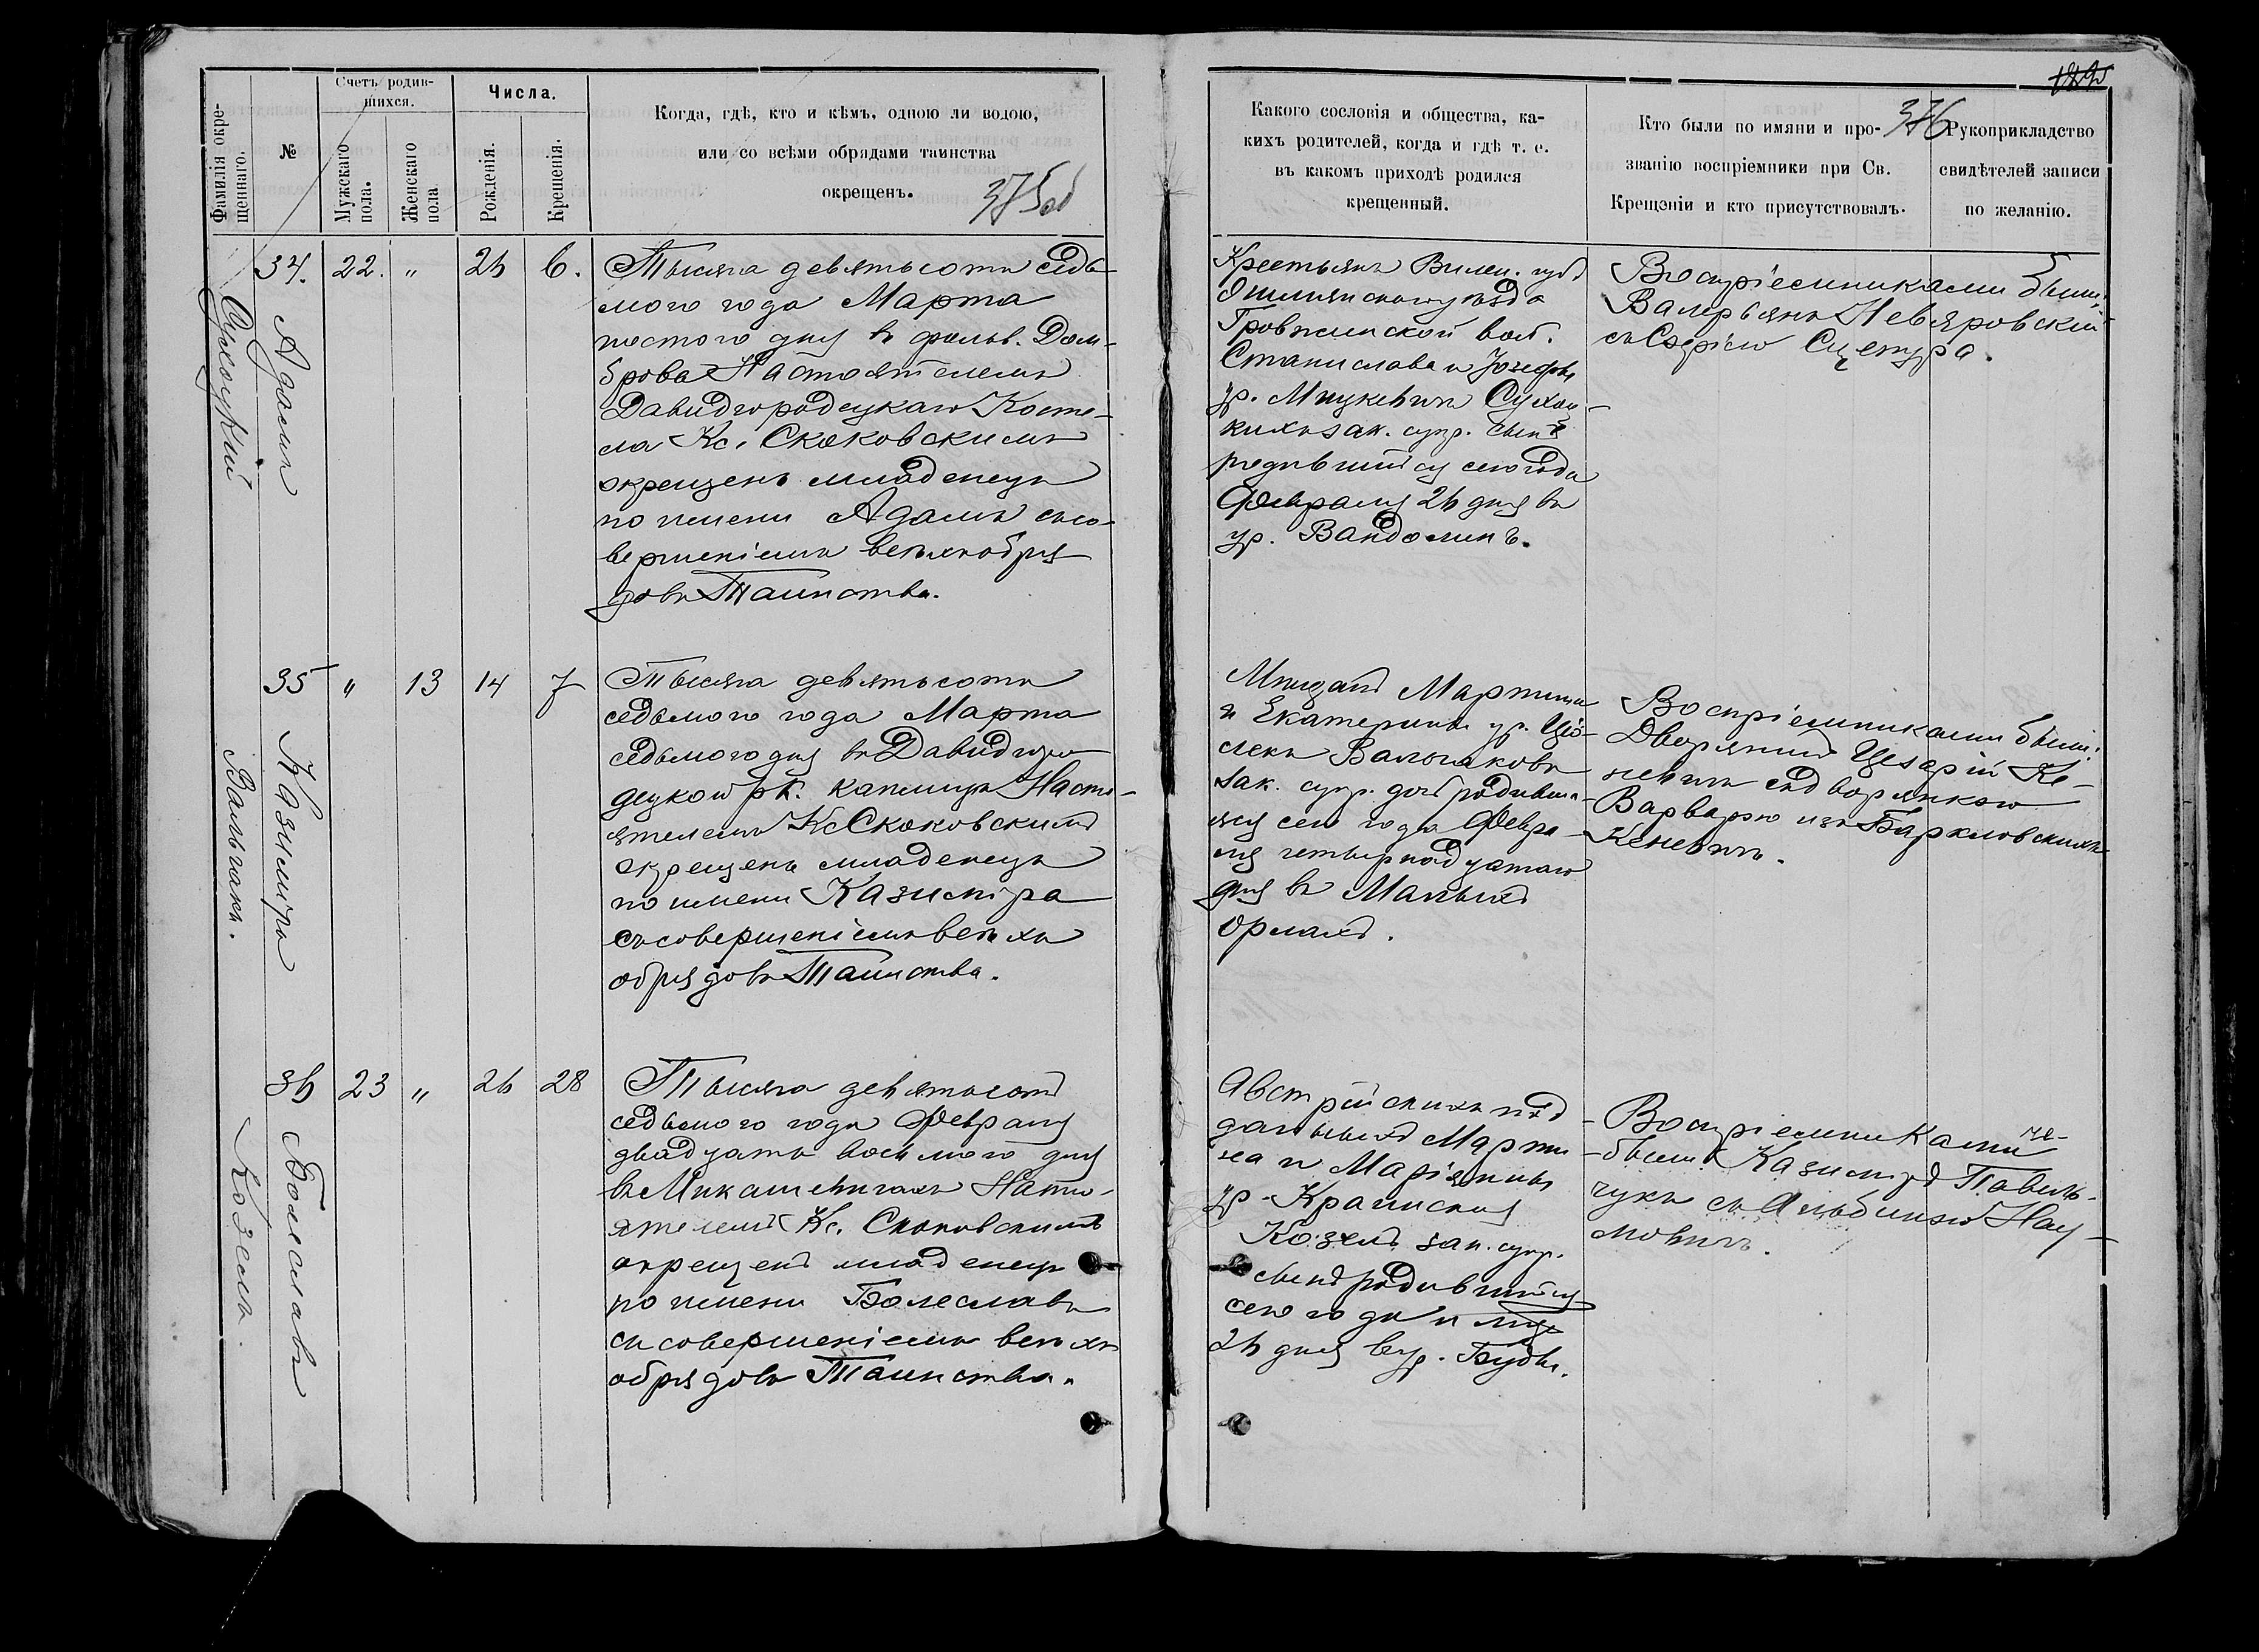 Фамилія окре-
щеннаго.
№
Счетъ родив-
шихся.
Мужскаго
пола.
Женскаго
пола.
Числа.
Рожденія.
Крещенія.
Когда, гдѣ, кто и кѣмъ, одною ли водою,
или со всѣми обрядами таинства
окрещенъ.
375об
34.
22.
"
26
6.
Адамъ
Сухоцкій
Тысяча девятьсотъ седь-
мого года Марта
шестого дня въ фольв. Дом-
брова Настоятелемъ
Давидгородецкаго Косте-
ла Кс. Скаковскимъ
окрещенъ младенецъ
по имени Адамъ съ со-
вершеніемъ всѣхъ обря
довъ Таинства.
35
"
13
14
7
Казимира
Вальчакъ.
Тысяча девятьсотъ
седьмого года Марта
седьмого дня въ Давидгоро
децкой рк. каплицѣ Насто-
ятелемъ Кс Скаковскимъ
окрещенъ младенецъ
по имени Казимѣра
съ совершеніемъ всѣхъ
обрядовъ Таинства.
36
23
"
26
28
Болеславъ
Козелъ.
Тысяча девятьсотъ
седьмого года Февраля
двадцать восьмого дня
въ Микашевичахъ Насто-
ятелемъ Кс. Скаковскимъ
окрещенъ младенецъ
по имени Болеславъ
съ совершеніемъ всѣхъ
обрядовъ Таинства.
Какого сословія и общества, ка-
кихъ родителей, когда и гдѣ т. е.
въ какомъ приходѣ родился
крещенный.
Кто были по имяни и про-
званію воспріемники при Св.
Крещэніи и кто присутствовалъ.
376
Рукоприкладство
свидѣтелей записи
по желанію.
Крестьянъ Вилен. губ
Ошмянскаго уѣзда
вол.
Станислава и Іозефы
ур. Мицкевичъ Сухоц-
кихъ зак. супр. сынъ
родившійся сего года
Февраля 26 дня въ
ур. Вандолинъ.
Воспріемниками были:
Валерьянъ Невяровскій
съ Софіею
Мѣщанъ Мартина
и Екатерины ур. Ціо-
лекъ Вальчаковъ
зак. супр. дочь родивша-
яся сего года Февра-
ля четырнадцатаго
дня въ Малыхъ
Орлахъ.
Воспріемниками были:
Дворянинъ Цезарій Ке-
невичъ съ дворянкою
Варварою изъ
Кеневичъ.
Австрійскихъ под
данныхъ Марти
на и Маріянны
ур.
Козелъ зак. супр.
сынъ родившійся
сего года и мѣс
26 дня въ ур. Буды.
Воспріемниками
были: Казимиръ Павлю-
чукъ съ Альбиною Нау-
мовичъ.